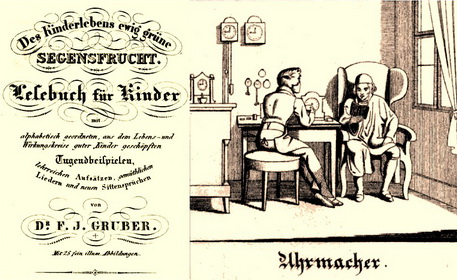 Des Kinderlebens ewig grüne
SEGENSFRUCHT.
Lesebuch für Kinder
mit
alphabetisch geordneten, aus dem Lebens- und
Wirkungskreise guter Kinder geschöpften
Tugendbeispielen,
lehrreichen Aufsätzen, gemüthlichen
Liedern und neuen Sittensprüchen
von
Dr. F. J. GRUBER.
Mit 25 fein illum. Abbildungen.
Uhrmacher.